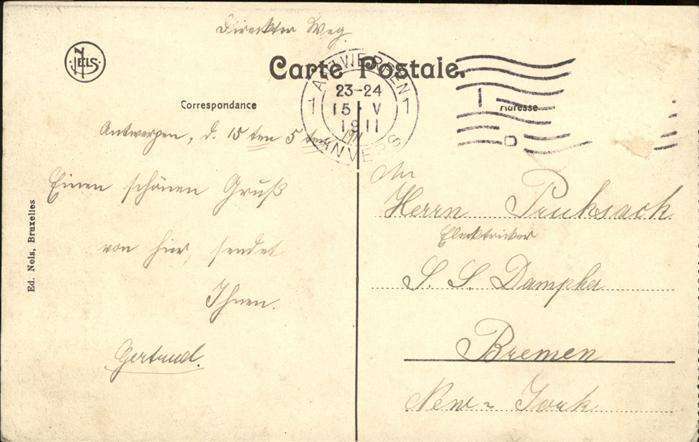 Direkter Weg
NELS
Carte Postale.
ANTWERPEN
1 1
23-24
15 V
1911
ANVERS
Correspondance
Adresse
Antwerpen, d. 15 ten 5 ten
1911
Einen schönen Gruß
von hier, sendet
Ihnen.
Gertrud.
An
Herrn Pruksach
Elektricker
S. S. Dampfer
Bremen
New-York
Ed. Nels, Bruxelles